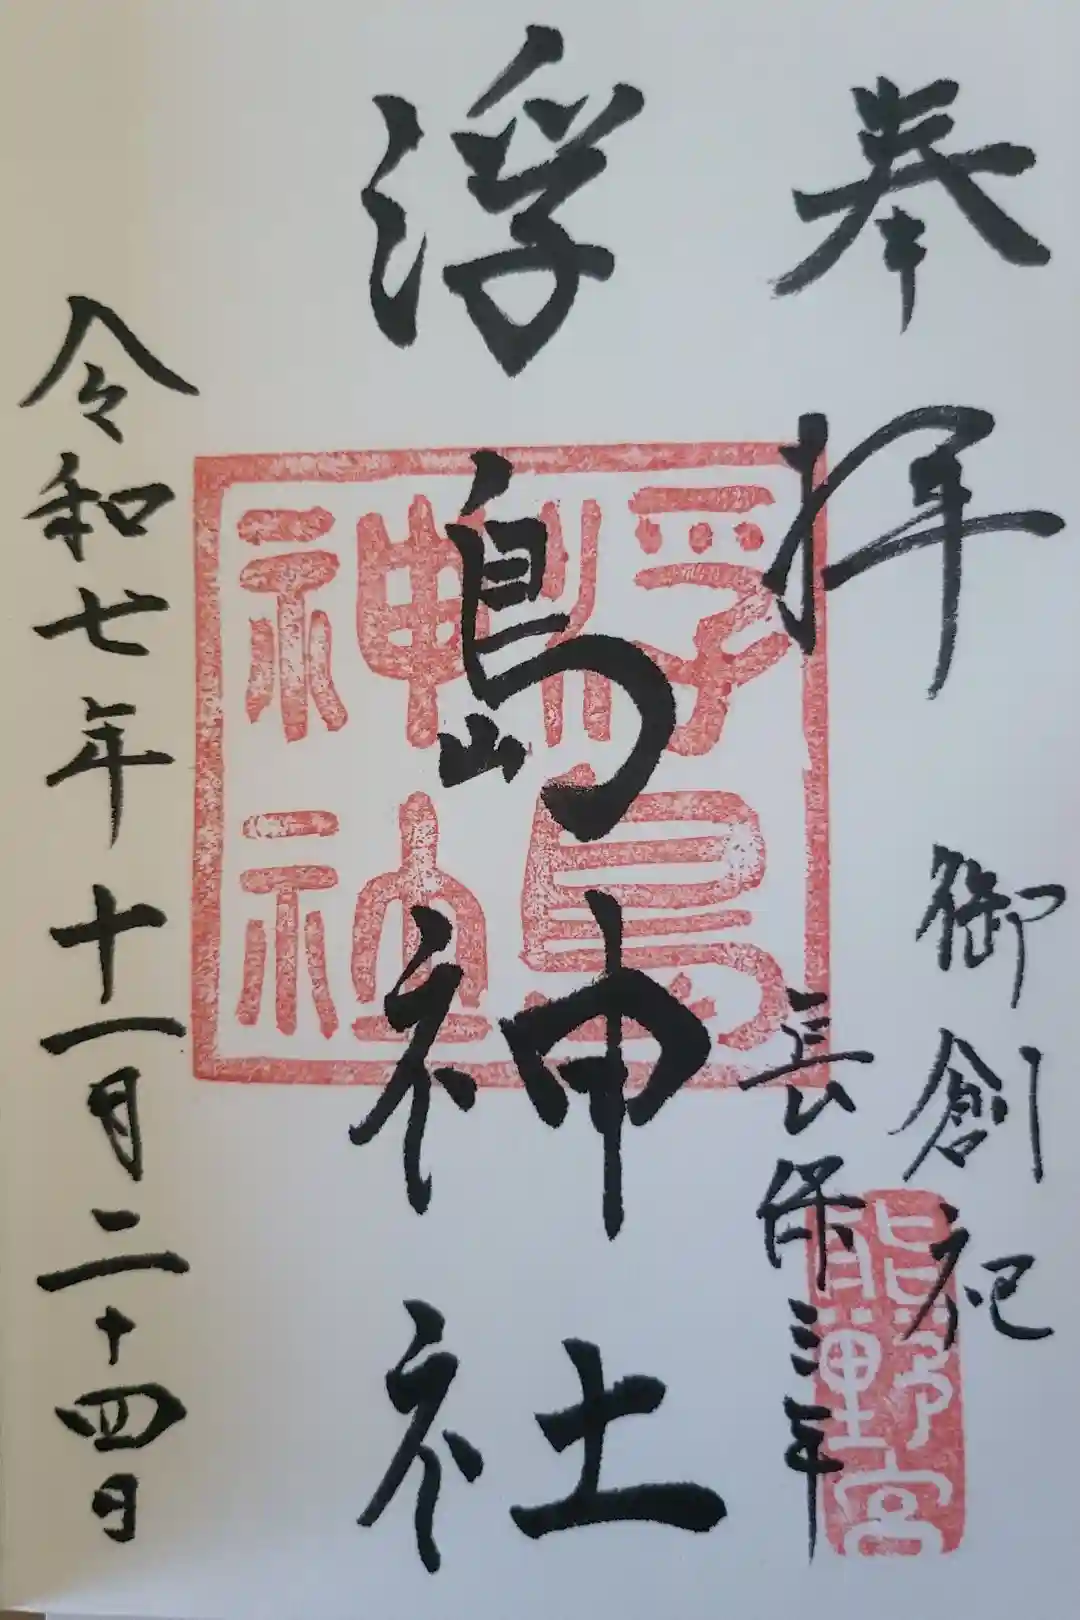 奉拝
御創祀
長保三年
熊野宮
浮嶋神社
浮島神社
令和七年十一月二十四日